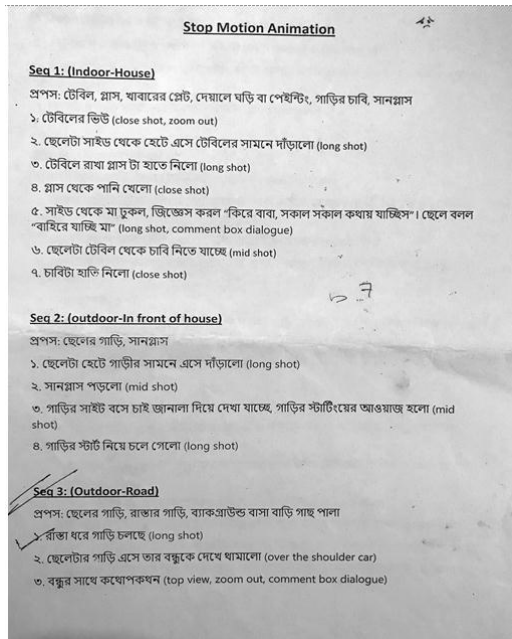 Stop Motion Animation
Seq 1: (Indoor-House)
প্রপস: টেবিল, গ্লাস, খাবারের প্লেট, দেয়ালে ঘড়ি বা পেইন্টিং, গাড়ির চাবি, সানগ্লাস
১. টেবিলের ভিউ (close shot, zoom out)
২. ছেলেটা সাইড থেকে হেটে এসে টেবিলের সামনে দাঁড়ালো (long shot)
৩. টেবিলে রাখা গ্লাস টা হাতে নিলো (long shot)
৪. গ্লাস থেকে পানি খেলো (close shot)
৫. সাইড থেকে মা ঢুকল, জিজ্ঞেস করল "কিরে বাবা, সকাল সকাল কথায় যাচ্ছিস"। ছেলে বলল
"বাহিরে যাচ্ছি মা" (long shot, comment box dialogue)
৬. ছেলেটা টেবিল থেকে চাবি নিতে যাচ্ছে (mid shot)
৭. চাবিটা হাতি নিলো (close shot)
Seq 2: (outdoor-In front of house)
প্রপস: ছেলের গাড়ি, সানগ্লাস
১. ছেলেটা হেটে গাড়ীর সামনে এসে দাঁড়ালো (long shot)
২. সানগ্লাস পড়লো (mid shot)
৩. গাড়ির সাইট বসে চাই জানালা দিয়ে দেখা যাচ্ছে, গাড়ির স্টার্টিংয়ের আওয়াজ হলো (mid
shot)
৪. গাড়ির স্টার্ট নিয়ে চলে গেলো (long shot)
Seq 3: (Outdoor-Road)
প্রপস: ছেলের গাড়ি, রাস্তার গাড়ি, ব্যাকগ্রাউন্ড বাসা বাড়ি গাছ পালা
১. রাস্তা ধরে গাড়ি চলছে (long shot)
২. ছেলেটার গাড়ি এসে তার বন্ধুকে দেখে থামালো (over the shoulder car)
৩. বন্ধুর সাথে কথোপকথন (top view, zoom out, comment box dialogue)